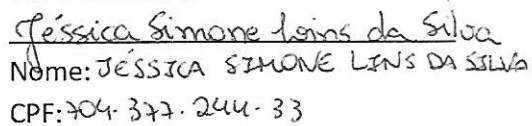 Jéssica Simone Lins da Silva
Nome: JÉSSICA SIMONE LINS DA SILVA
CPF: 704.377.244-33